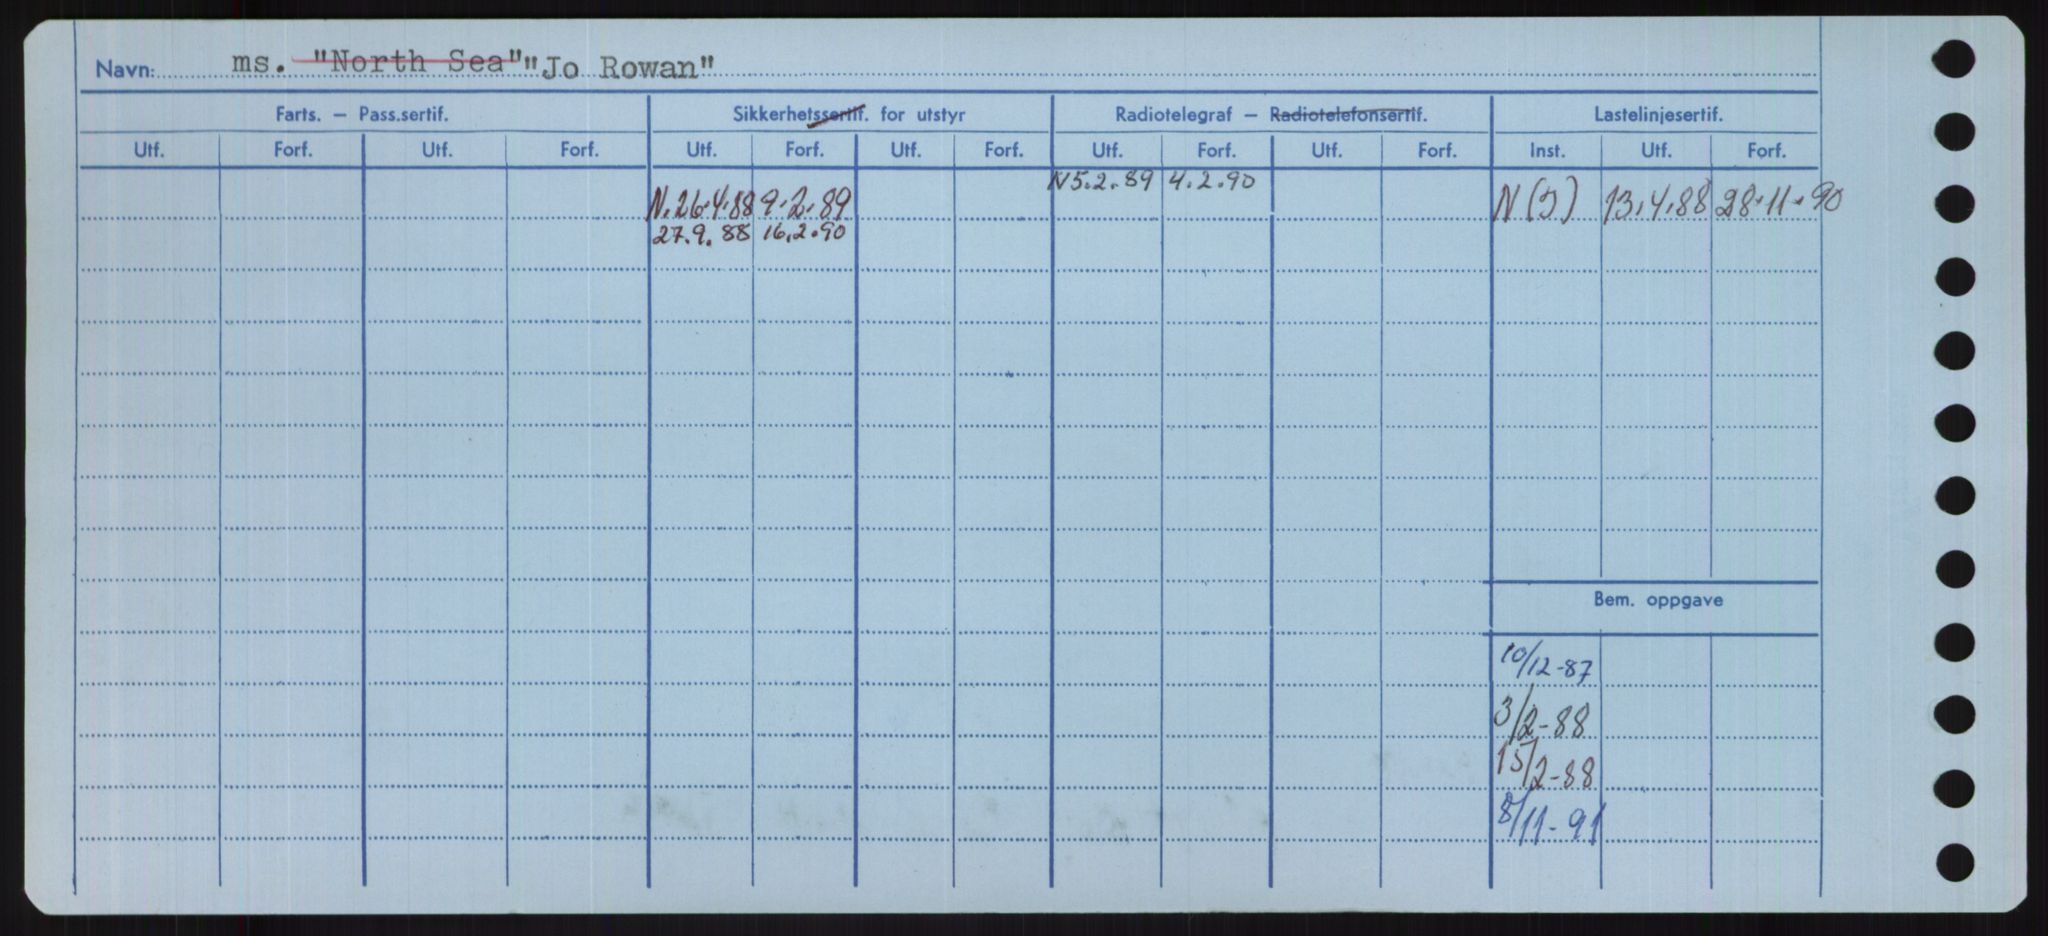 Navn: ms. "North Sea" "Jo Rowan"
Farts. — Pass.sertif. Sikkerhetssertif. for utstyr Radiotelegraf — Radiotelefonsertif. Lastelinjesertif.
Utf. Forf. Utf. Forf. Utf. Forf. Utf. Forf. Utf. Forf. Utf. Forf. Inst. Utf. Forf.
N5.2.89 4.2.90
N.26.4.88 9.2.89 N(J) 13.4.88 28.11.90
27.9.88 16.2.90
Bem. oppgave
10/12-87
3/2-88
15/2-88
8/11-91